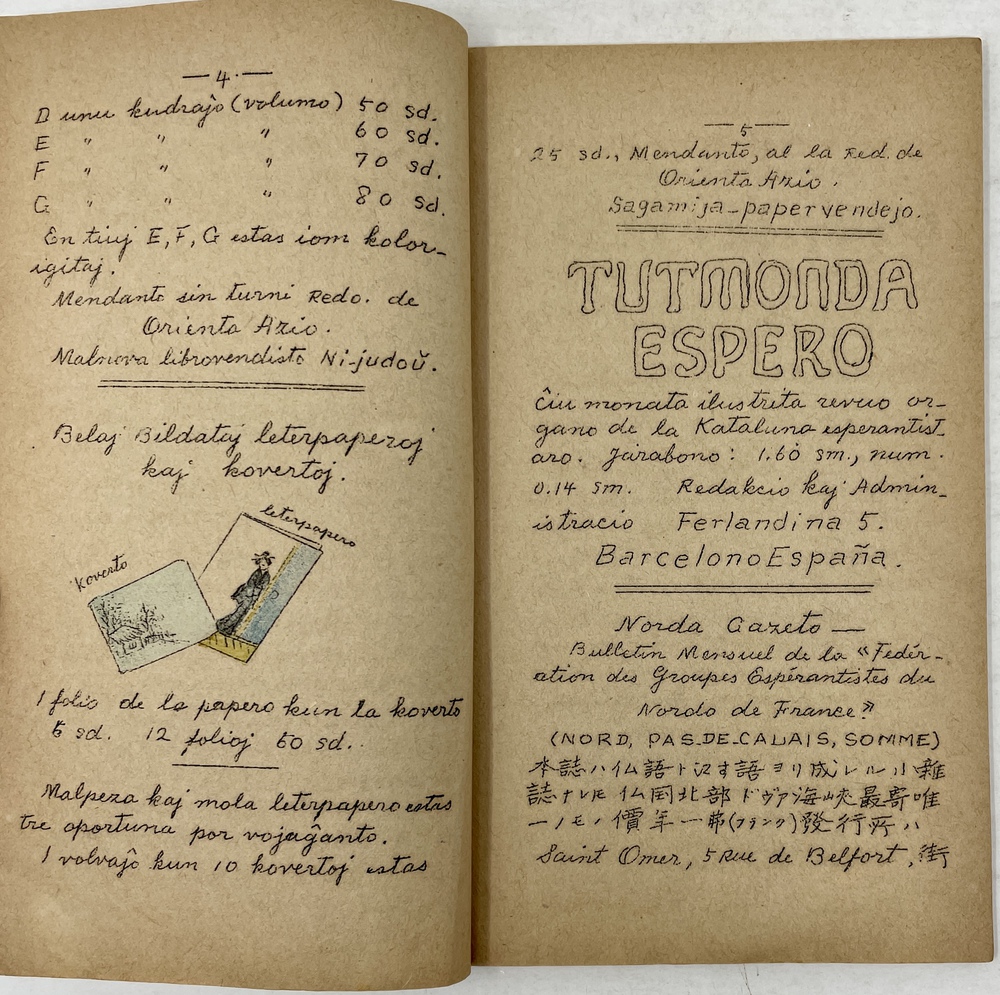 — 4. —
D unu kudraĵo (volumo) 50 sd.
E " " " 60 sd.
F " " " 70 sd.
G " " " 80 sd.
En tiuj E, F, G estas iom kolor-
igitaj.
Mendanto sin turni Redo. de
Orienta Azio.
Malnova librovendisto Ni-judoŭ.
Belaj Bildataj leterpaperoj
kaj kovertoj.
leterpapero
koverto
1 folio de la papero kun la koverto
6 sd. 12 folioj 60 sd.
Malpeza kaj mola leterpapero estas
tre oportuna por vojaĝanto.
1 volvaĵo kun 10 kovertoj estas
— 5 —
25 sd., Mendanto, al la Red. de
Orienta Azio.
Sagamija-papervendejo.
TUTMONDA
ESPERO
Ĉiu monata ilustrita revuo or-
gano de la Kataluna esperantist
aro. Jarabono: 1.60 sm., num.
0.14 sm. Redakcio kaj Admin-
istracio Ferlandina 5.
Barcelono España.
Norda Gazeto —
Bulletin Mensuel de la «Fedér-
ation des Groupes Espérantistes du
Nordo de France»
(NORD, PAS-DE-CALAIS, SOMME)
本誌ハ仏語ト語ヨリ成レル小雑
誌ナレモ仏国北部ドヴァ海峡最寄唯
一ノモノ價年一弗(フランク)發行所ハ
Saint Omer, 5 Rue de Belfort, 街